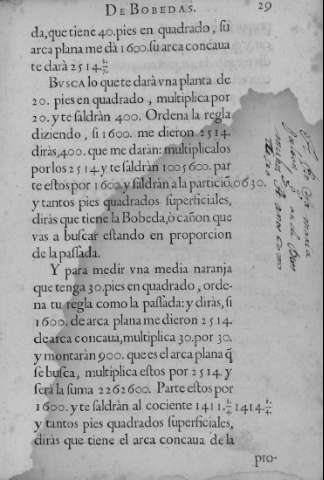 DE BOBEDAS. 29
da, que tiene 40. pies en quadrado, su
arca plana me dà 1600. su arca concaua
te darà 2514. ½
BVSCA lo que te darà vna planta de
20. pies en quadrado, multiplica por
20. y te saldràn 400. Ordena la regla
diziendo, si 1600. me dieron 2514.
diràs, 400. que me daràn: multiplicalos
por los 2514. y te saldràn 1005600. par
te estos por 1600. y saldràn a la particiõ, 0630.
y tantos pies quadrados superficiales,
diràs que tiene la Bobeda, ò cañon que
vas a buscar estando en proporcion
de la passada.
Y para medir vna media naranja
que tenga 30. pies en quadrado, orde-
na tu regla como la passada: y diràs, si
1600. de arca plana me dieron 2514.
de arca concaua, multiplica 30. por 30.
y montaràn 900. que es el arca plana q̃
se busca, multiplica estos por 2514. y
serà la suma 2262600. Parte estos por
1600. y te saldràn al cociente 1411. ½ 1414. ½
y tantos pies quadrados superficiales,
diràs que tiene el arca concaua de la
pro-